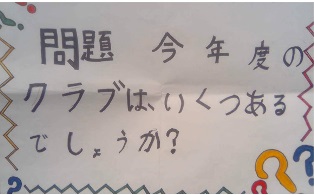 問題 今年度の
クラブは、いくつある
でしょうか?